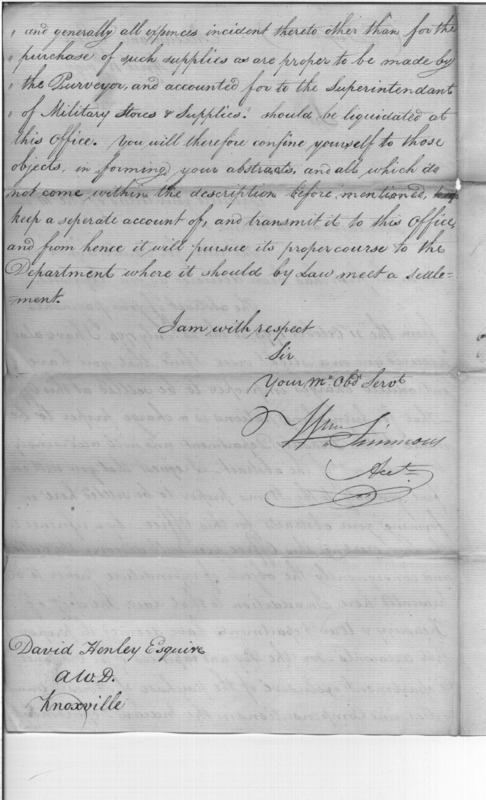 " and generally all expences incident thereto other than for the
" purchase of such supplies as are proper to be made by
" the Purveyor, and accounted for to the Superintendant
" of Military Stores & Supplies." should be liquidated at
this Office. You will therefore confine yourself to those
objects, in forming your abstracts, and all which do
not come within the description before mentioned,
keep a seperate account of, and transmit it to this Office,
and from hence it will pursue its proper course to the
Department where it should by Law meet a settle=
=ment.
I am with respect
Sir
Your Mo Obd Servt
Wm Simmons
Acct
David Henley Esquire
A.W.D.
Knoxville